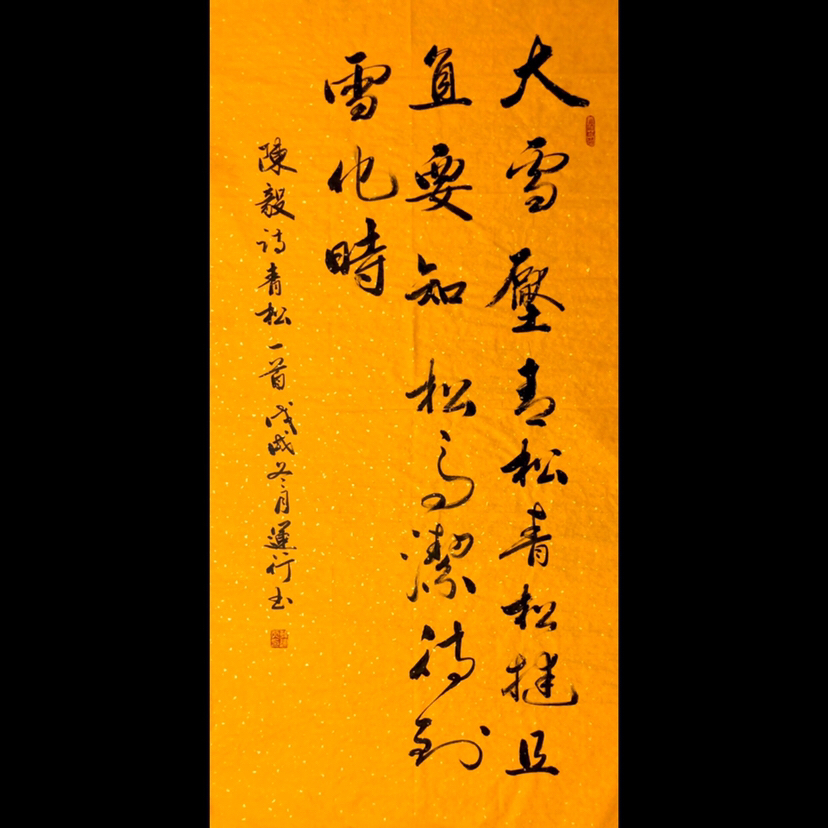 大雪壓青松青松挺且
直要知松高潔待到
雪化時
陳毅诗青松一首戊戌冬月運行书